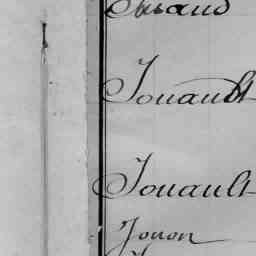 Jouault
Jouault
Jouon